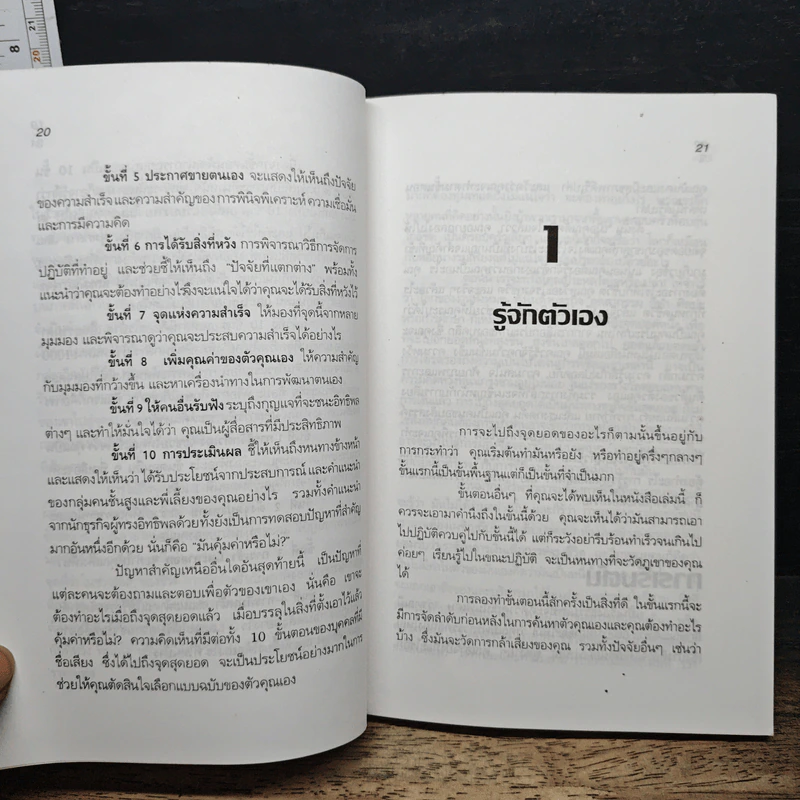 8
21
20
20
ขั้นที่ 5 ประกาศขายตนเอง จะแสดงให้เห็นถึงปัจจัย
ของความสำเร็จ และความสำคัญของ การพินิจพิเคราะห์ ความเชื่อมั่น
และการมีความคิด
ขั้นที่ 6 การได้รับสิ่งที่หวัง การพิจารณาวิธีการจัดการ
ปฏิบัติที่ทำอยู่ และช่วยชี้ให้เห็นถึง “ปัจจัยที่แตกต่าง” พร้อมทั้ง
แนะนำว่าคุณจะต้องทำอย่างไรจึงจะแน่ใจได้ว่าคุณจะได้รับสิ่งที่หวังไว้
ขั้นที่ 7 จุดแห่งความสำเร็จ ให้มองที่จุดนี้จากหลาย
มุมมอง และพิจารณาดูว่าคุณจะประสบความสำเร็จได้อย่างไร
ขั้นที่ 8 เพิ่มคุณค่าของตัวคุณเอง ให้ความสำคัญ
กับมุมมองที่กว้างขึ้น และหาเครื่องนำทางในการพัฒนาตนเอง
ขั้นที่ 9 ให้คนอื่นรับฟัง ระบุถึงกุญแจที่จะชนะอิทธิพล
ต่างๆ และทำให้มั่นใจได้ว่า คุณเป็นผู้สื่อสารที่มีประสิทธิภาพ
ขั้นที่ 10 การประเมินผล ชี้ให้เห็นถึงหนทางข้างหน้า
และแสดงให้เห็นว่า ได้รับประโยชน์จากประสบการณ์ และคำแนะนำ
ของกลุ่มคนชั้นสูงและพี่เลี้ยงของคุณอย่างไร รวมทั้งคำแนะนำ
จากนักธุรกิจผู้ทรงอิทธิพลด้วยทั้งยังเป็นการทดสอบปัญหาที่สำคัญ
มากอันหนึ่งอีกด้วย นั่นก็คือ “มันคุ้มค่าหรือไม่?”
ปัญหาสำคัญเหนืออื่นใดอันสุดท้ายนี้ เป็นปัญหาที่
แต่ละคนจะต้องถามและตอบเพื่อตัวของเขาเอง นั่นคือ เขาจะ
ต้องทำอะไรเมื่อถึงจุดสุดยอดแล้ว เมื่อบรรลุในสิ่งที่ตั้งเอาไว้แล้ว
คุ้มค่าหรือไม่? ความคิดเห็นที่มีต่อทั้ง 10 ขั้นตอนของบุคคลที่มี
ชื่อเสียง ซึ่งได้ไปถึงจุดสุดยอด จะเป็นประโยชน์อย่างมากในการ
ช่วยให้คุณตัดสินใจเลือกแบบฉบับของตัวคุณเอง
21
1
รู้จักตัวเอง
การจะไปถึงจุดยอดของอะไรก็ตามนั้นขึ้นอยู่กับ
การกระทำว่า คุณเริ่มต้นทำมันหรือยัง หรือทำอยู่ครึ่งๆกลางๆ
ขั้นแรกนี้เป็นขั้นพื้นฐานแต่ก็เป็นขั้นที่จำเป็นมาก
ขั้นตอนอื่นๆ ที่คุณจะได้พบเห็นในหนังสือเล่มนี้ ก็
ควรจะเอามาคำนึงถึงในขั้นนี้ด้วย คุณจะเห็นได้ว่ามันสามารถเอา
ไปปฏิบัติควบคู่ไปกับขั้นนี้ได้ แต่ก็ระวังอย่ารีบร้อนทำเร็วจนเกินไป
ค่อยๆ เรียนรู้ไปในขณะปฏิบัติ จะเป็นหนทางที่จะวัดภูเขาของคุณ
ได้
การลองทำขั้นตอนนี้สักครั้งเป็นสิ่งที่ดี ในขั้นแรกนี้จะ
มีการจัดลำดับก่อนหลังในการค้นหาตัวคุณเองและคุณต้องทำอะไร
บ้าง ซึ่งมันจะวัดการกล้าเสี่ยงของคุณ รวมทั้งปัจจัยอื่นๆ เช่นว่า